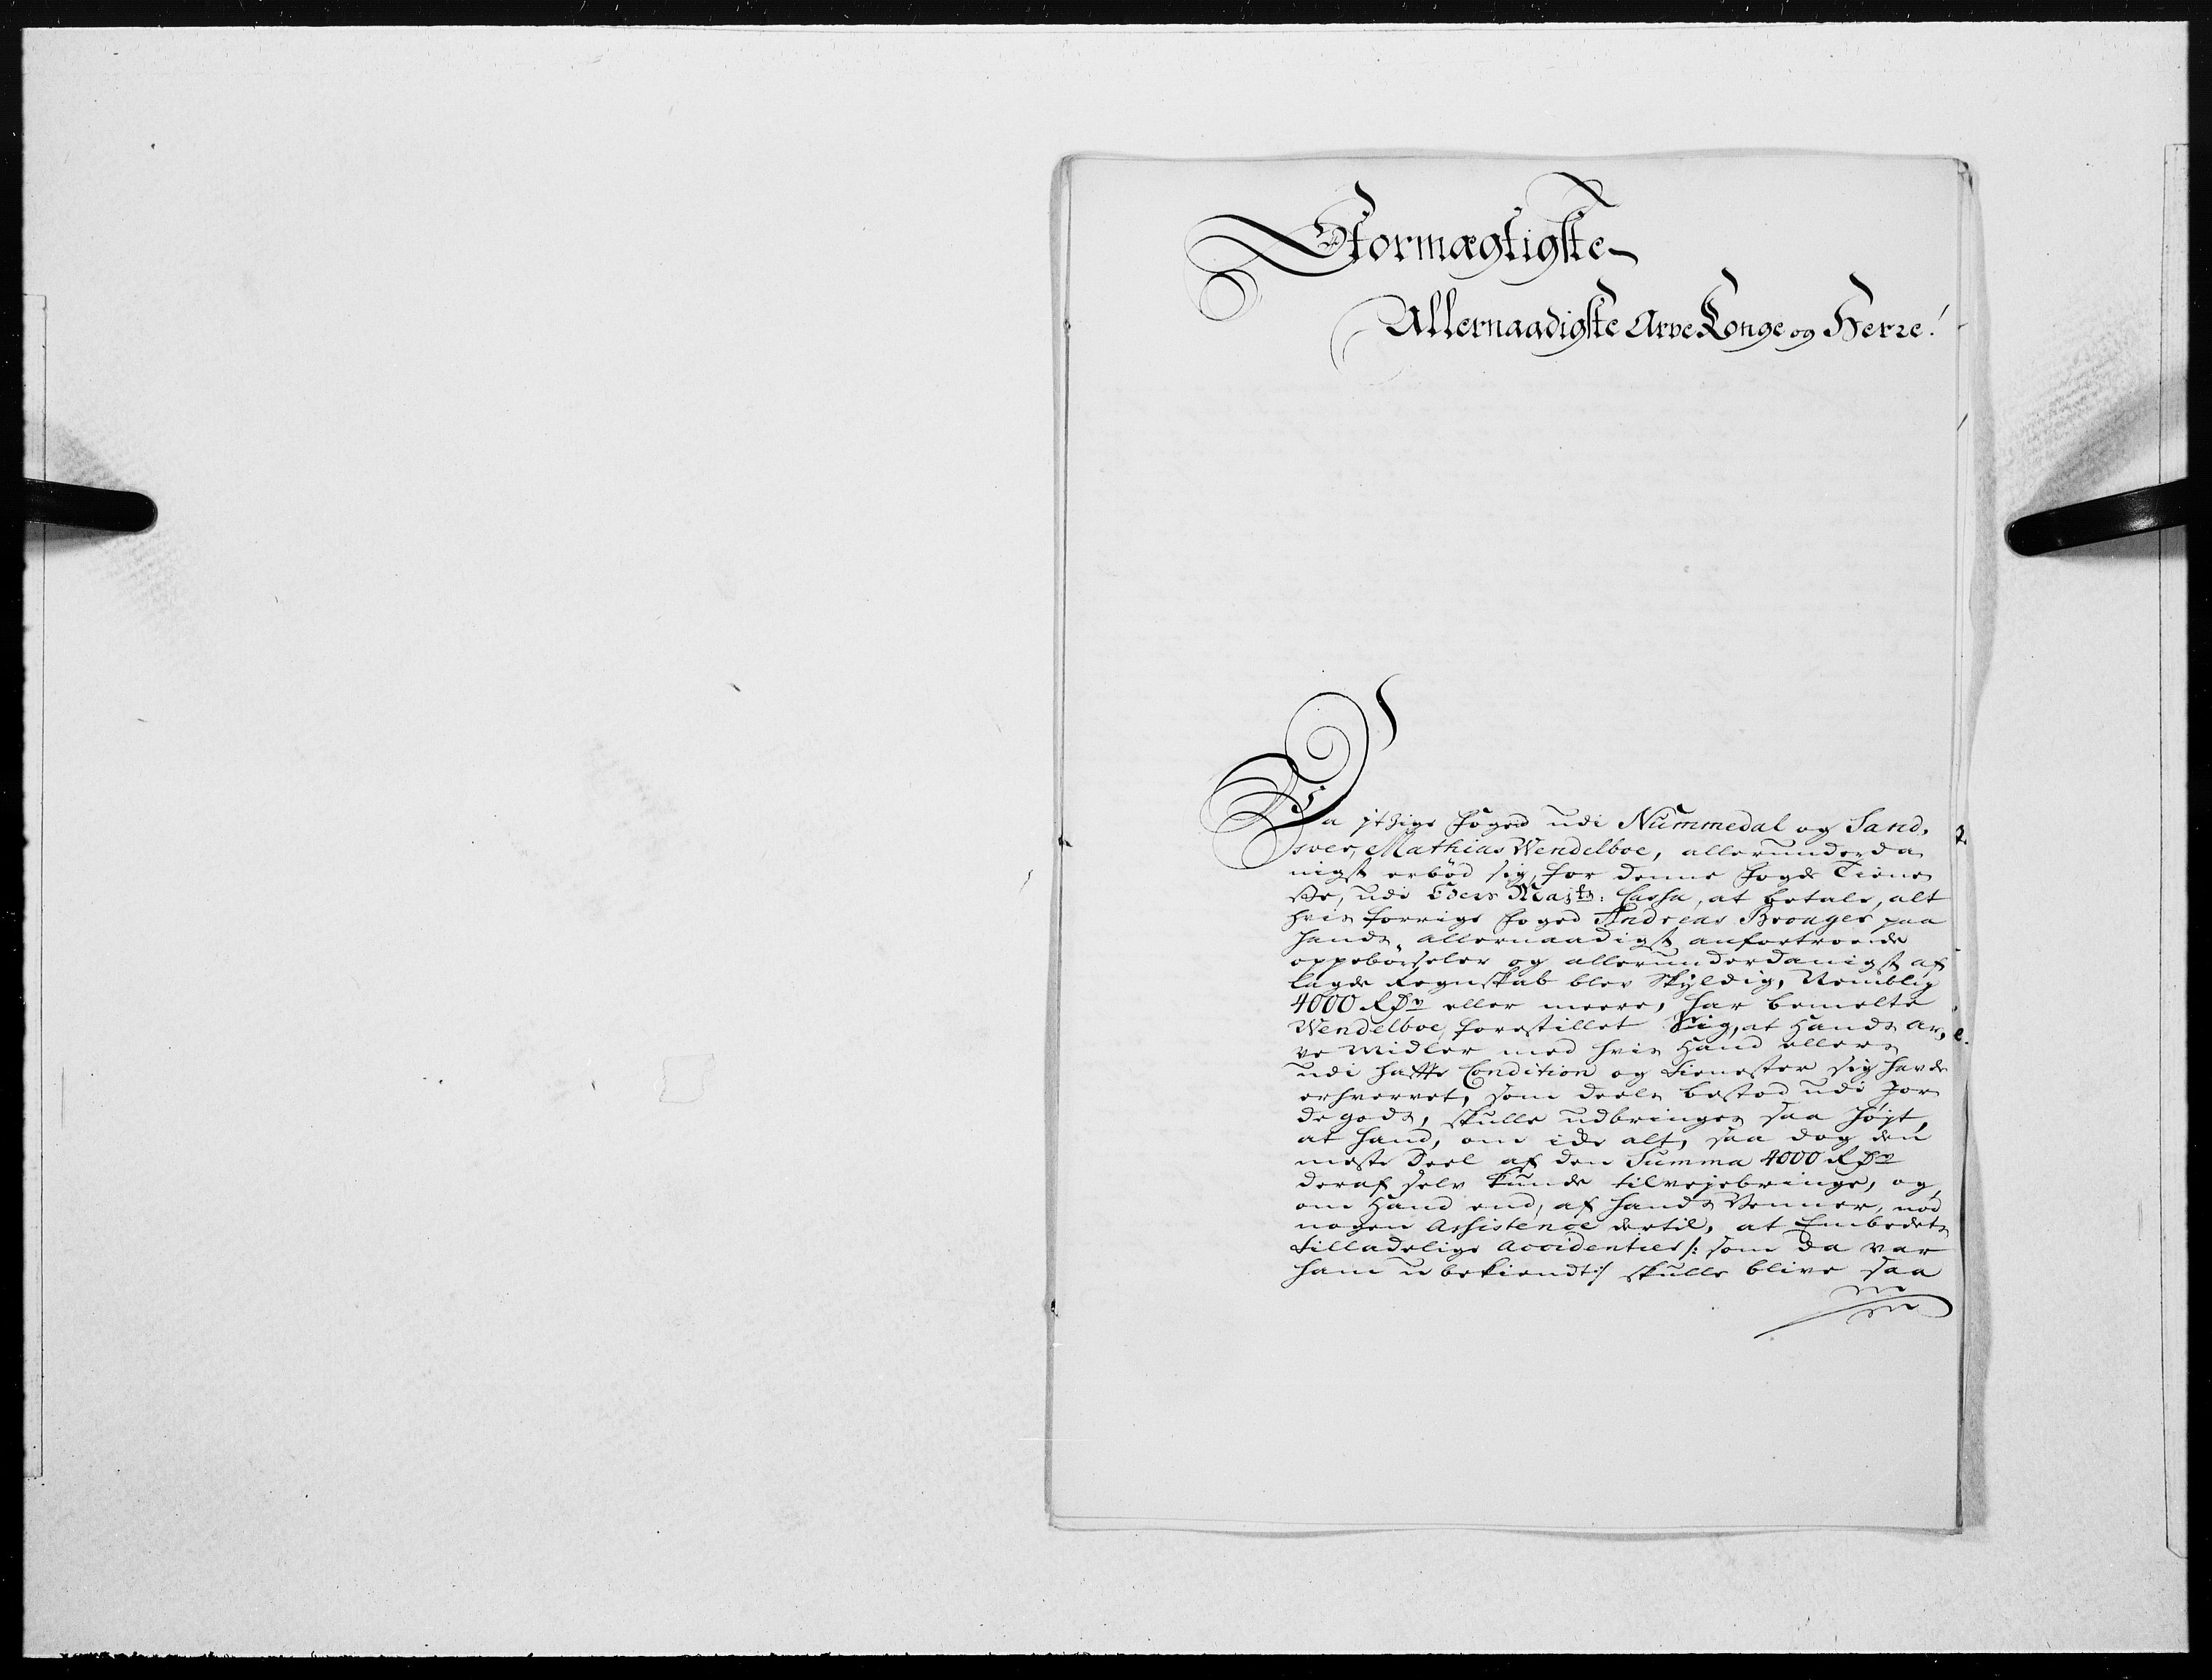 Stormægtigste
Allernaadigste Arve Konge og Herre!
Da itzige Foged udi Nummedal og Sand,
sver, Mathias Wendelboe, allerunderda
nigst erbød sig, for denne Fogde Tiene
ste, udi Eders Maj:ts: Cassa, at betale, alt
hvis forrige Foged Andreas Bronger paa
hands allernaadigst anfortroede
oppebørseler og allerunderdanigst af
lagde Regnskab blev Skyldig, Nemblig
4000 Rdr eller meere, har bemelte
Wendelboe, forestillet Sig, at Hands ar,
ve Midler med hvis Hand ellers
udi hafte Condition og tienester sig hafde
erhvervet, som deels bestod udi Jor
degods, skulle udbringes saa højt,
at hand, om icke alt, saa dog den
meste Deel af den Summa 4000 Rdr
deraf selv kunde tilvejebringe, og,
om Hand end, af hands Venner, nød
nogen Assistence dertil, at Embedets
tilladelige Accidentier /: som da var
ham ubekiendt :/ skulle blive saa